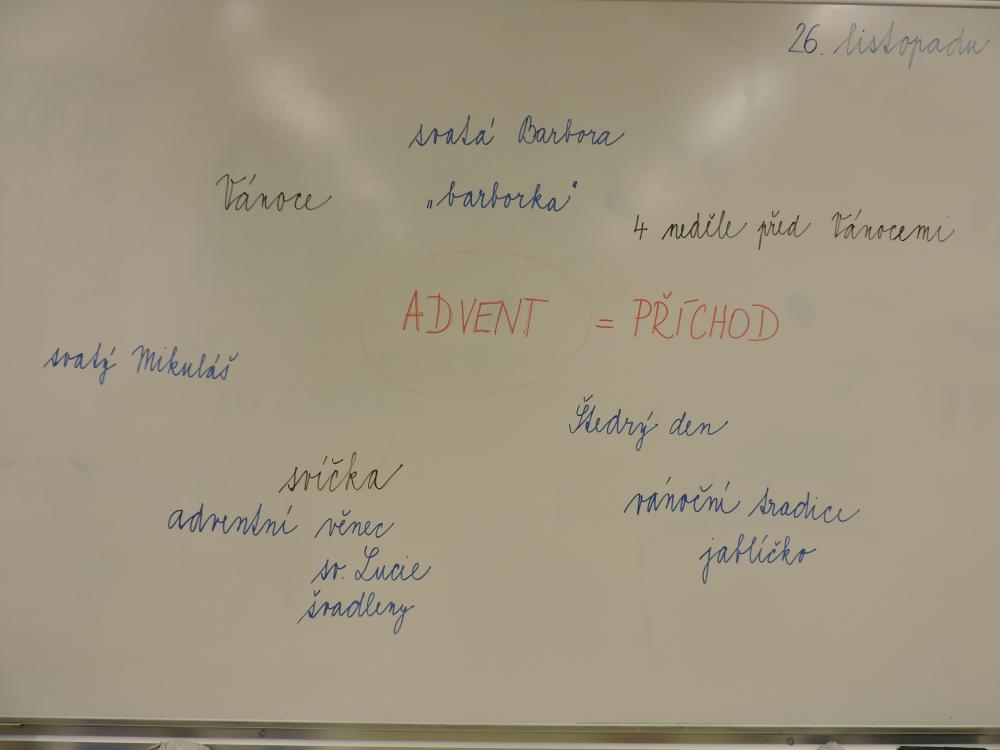 26. listopadu
svatá Barbora
Vánoce
„barborka"
4 neděle před Vánocemi
ADVENT = PŘÍCHOD
svatý Mikuláš
Štedrý den
svíčka
vánoční tradice
adventní věnec
jablíčko
sv. Lucie
švadleny